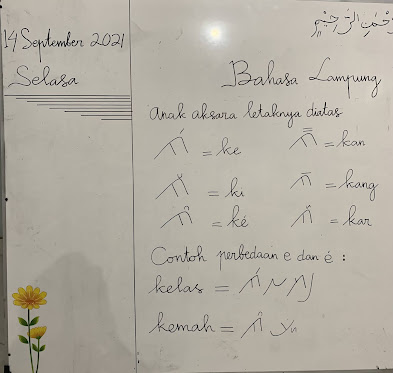 حْمٰنِ الرَّحِيْمِ
14 September 2021
Selasa
Bahasa Lampung
Anak aksara letaknya diatas
= ke = kan
= ki = kang
= ké = kar
Contoh perbedaan e dan é :
kelas =
kemah =